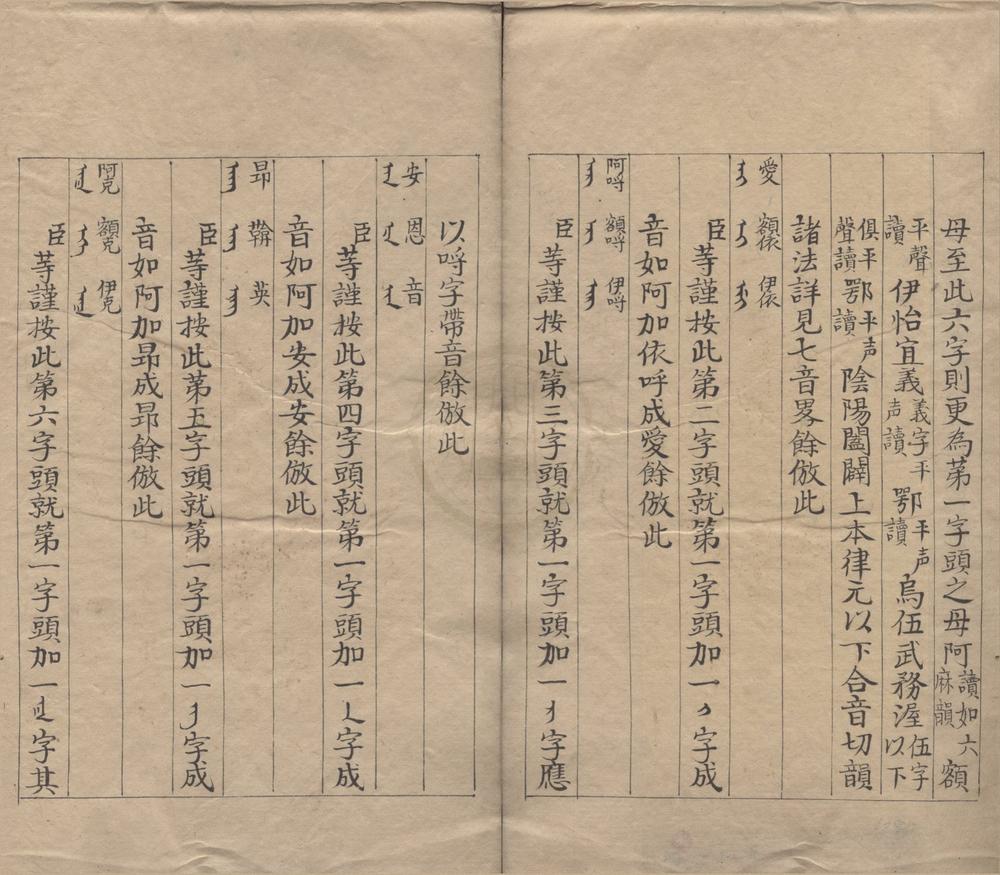 母至此六字則更為第一字頭之母阿讀如六麻韻額
平聲讀伊怡宜義義字平声讀鄂平声讀烏伍武務渥伍字以下
俱平聲讀鄂平声讀陰陽闔闢上本律元以下合音切韻
諸法詳見七音畧餘倣此
愛 額依 伊依
臣等謹按此第二字頭就第一字頭加一字成
音如阿加依呼成愛餘倣此
阿哷 額哷 伊哷
臣等謹按此第三字頭就第一字頭加一字應
以哷字帶音餘倣此
安 恩 音
臣等謹按此第四字頭就第一字頭加一字成
音如阿加安成安餘倣此
昻 鞥 英
臣等謹按此第五字頭就第一字頭加一字成
音如阿加昻成昻餘倣此
阿克 額克 伊克
臣等謹按此第六字頭就第一字頭加一字其